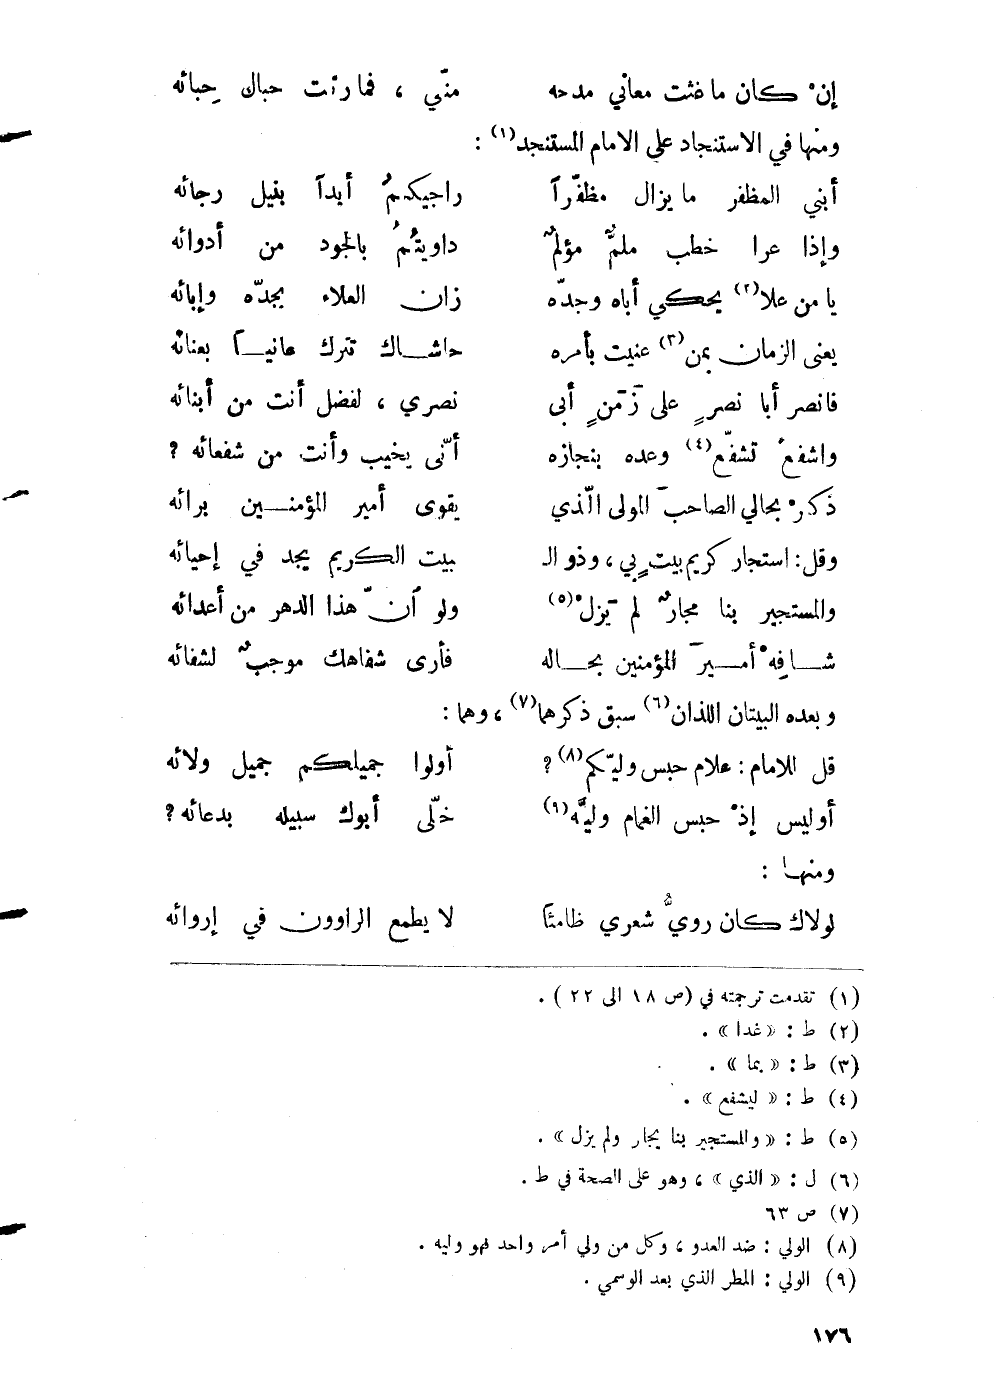 إنْ كان ما غثت معاني مدحه منّي ، فما رثت حبال حِبائه
ومنها في الاستنجاد على الامام المستنجد(١) :
أبني المظفر ما يزال مظفّراً راجيكمُ أبداً بنيل رجائه
وإذا عرا خطب ملمٌّ مؤلمٌ داويتُمُ بالجود من أدوائه
يا من علا(٢) يحكي أباه وجدّه زان العلاء بجدّه وإبائه
يعنى الزمان بمن(٣) عنيت بأمره حاشاك تترك عانياً بعنائه
فانصر أبا نصرٍ على زَمَنٍ أبى نصري ، لفضل أنت من أبنائه
واشفعْ تشفّع(٤) وعده بنجازه أنّى يخيب وأنت من شفعائه ?
ذكرْ بحالي الصاحبَ المولى الّذي يقوى أمير المؤمنين برائه
وقل: استجار كريم بيتٍ بي ، وذو الـ بيت الكريم يجد في إحيائه
والمستجير بنا مجارٌ لم يَزلْ(٥) ولو أنّ هذا الدهر من أعدائه
شافِهْ أميرَ المؤمنين بحاله فأرى شفاهك موجبٌ لشفائه
وبعده البيتان اللذان(٦) سبق ذكرهما(٧) ، وهما :
قل للامام : علام حبس وليّكم(٨) ? أولوا جميلكم جميل ولائه
أوليس إذْ حبس الغمام وليَّه(٩) خلّى أبوك سبيله بدعائه ?
ومنها :
لولاك كان رويُّ شعري ظامئاً لا يطمع الراوون في إروائه
(١) تقدمت ترجمته في (ص ١٨ الى ٢٢ ) .
(٢) ط : « غدا » .
(٣) ط : « بما » .
(٤) ط : « ليشفع » .
(٥) ط : « والمستجير بنا يجار ولم يزل » .
(٦) ل : « الذي » ، وهو على الصحة في ط .
(٧) ص ٦٣
(٨) الولي : ضد العدو ، وكل من ولي أمر واحد فهو وليه .
(٩) الولي : المطر الذي بعد الوسمي .
١٧٦